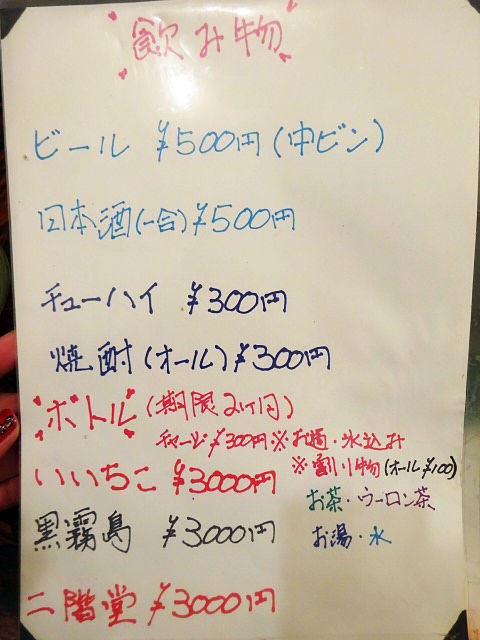 飲み物
ビール ¥500円(中ビン)
日本酒(一合)¥500円
チューハイ ¥300円
焼酎(オール)¥300円
ボトル(期限2ケ月)
チャージ¥300円※お湯・氷込み
いいちこ ¥3000円
※割り物(オール¥100)
お茶・ウーロン茶
黒霧島 ¥3000円
お湯・水
二階堂 ¥3000円